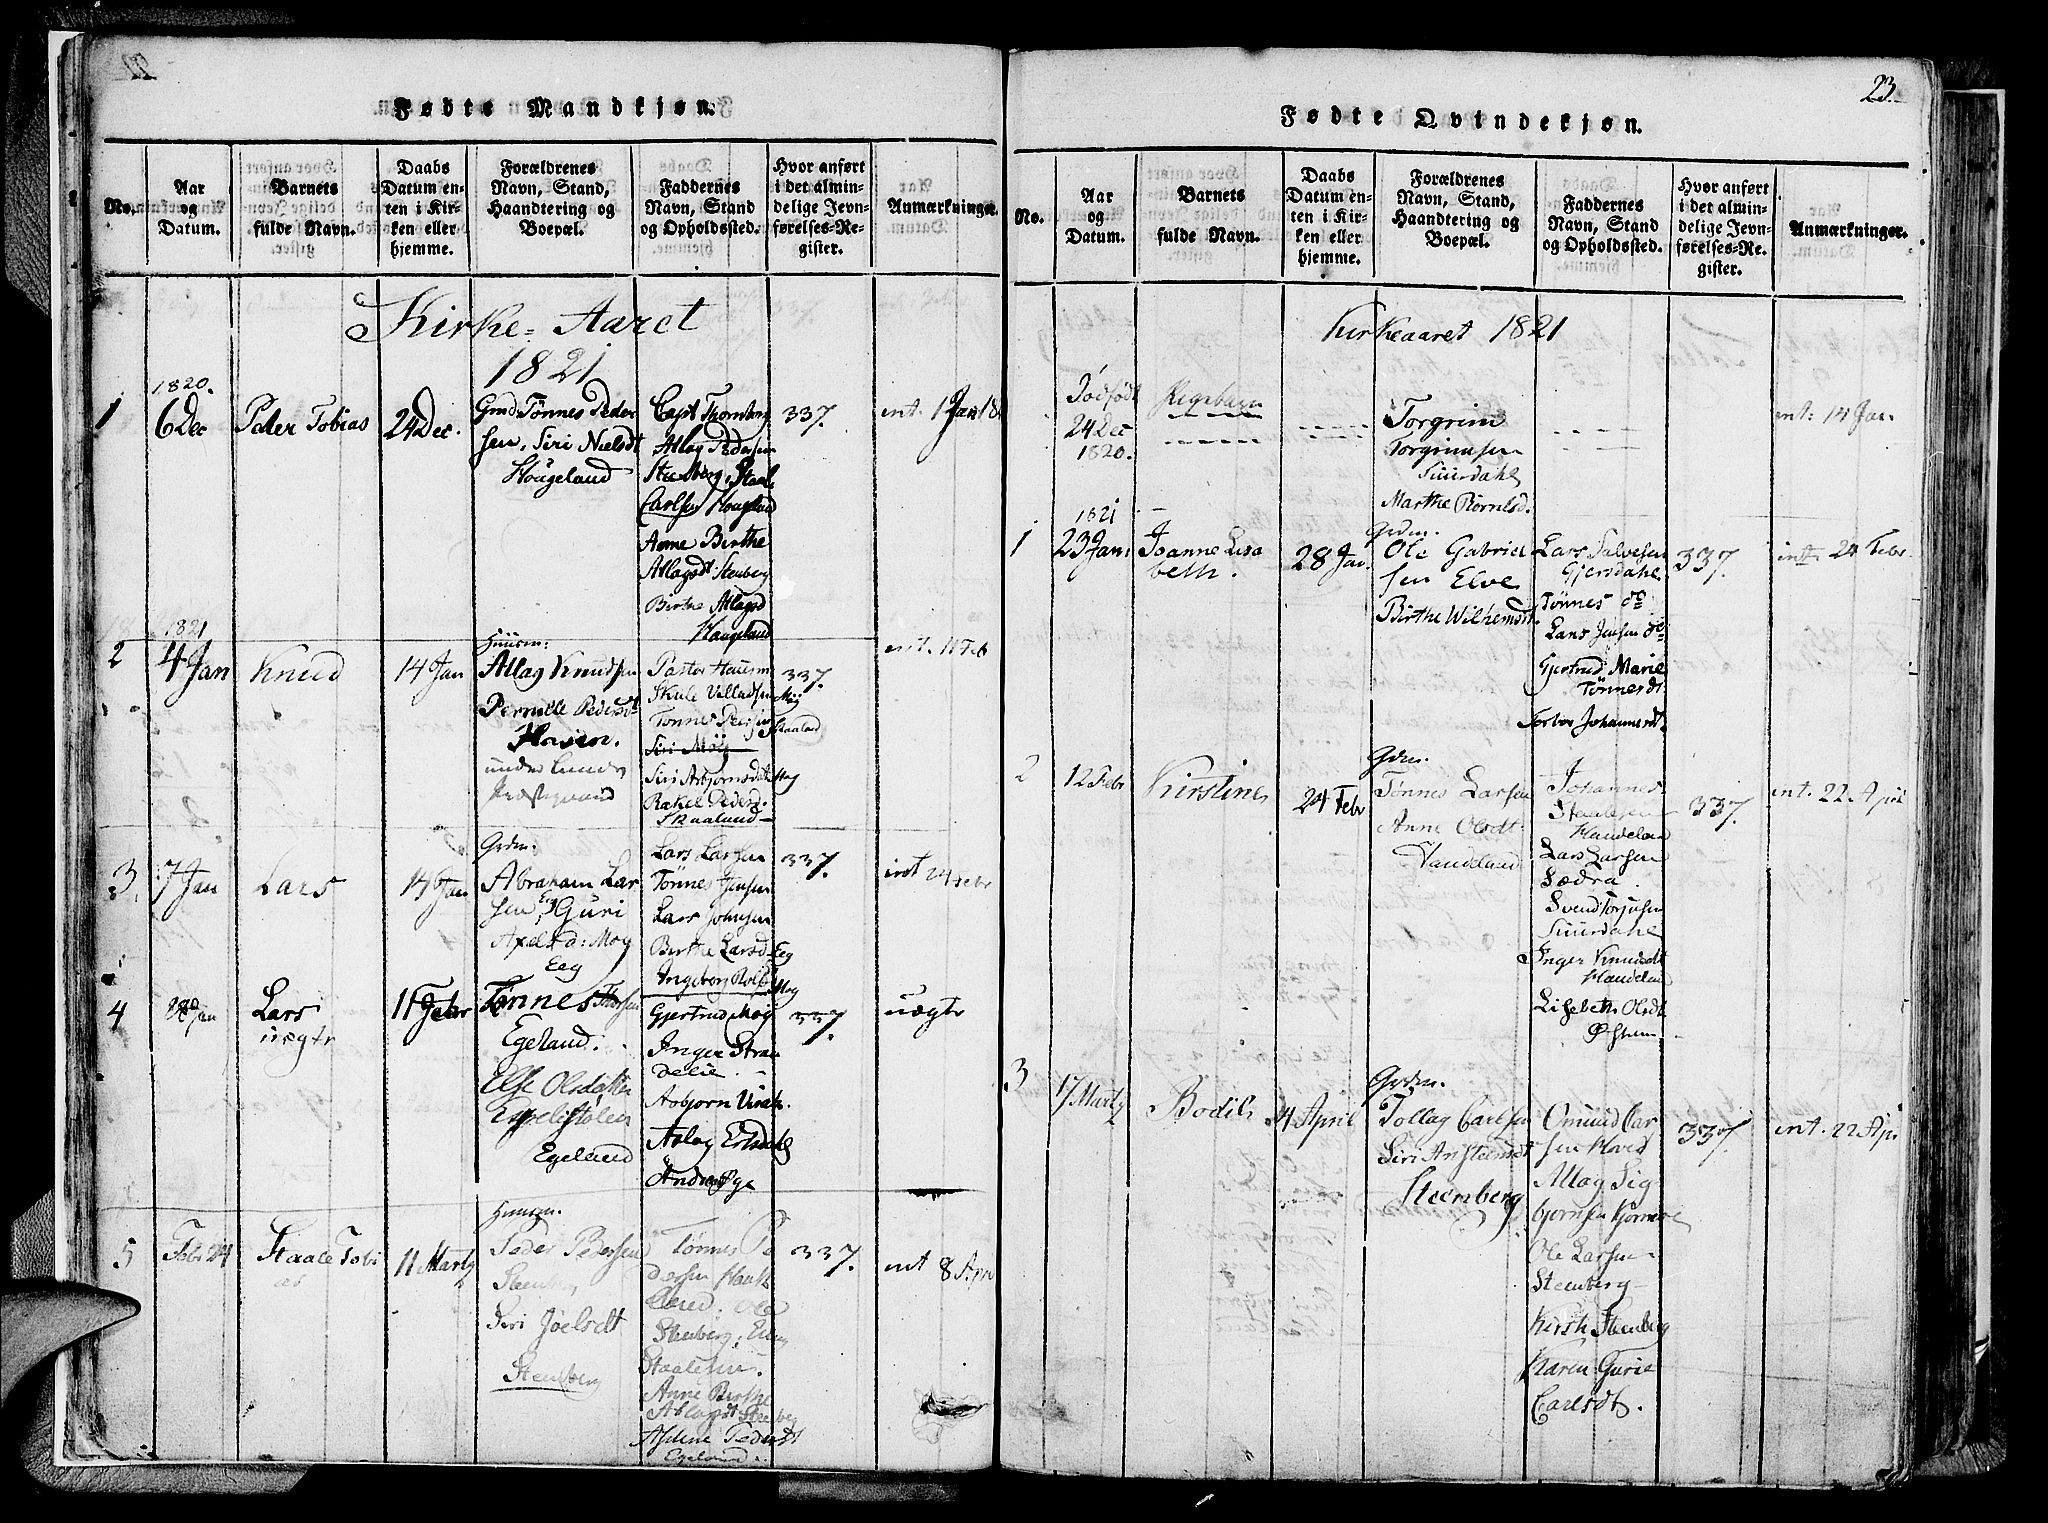 22
Fødte Mandkjøn.
No.
Aar
og
Datum.
Barnets
fulde Navn.
Daabs
Datum en-
ten i Kir-
ken eller
hjemme.
Forældrenes
Navn, Stand,
Haandtering og
Boepæl.
Faddernes
Navn, Stand
og Opholdssted.
Hvor anført
i det almin-
delige Jevn-
førelses-Re-
gister.
Anmærkninger.
Kirke-Aaret
1821
1
1820.
6 Dec
Peder Tobias
24 Dec.
Gmd Tønnes Peder
sen, Siri Nielsdt
Hougeland
Capt Thornberg
Atlag Pedersen
Steenberg, Staale
Carlsen Hougland
Anne Birthe
Atlagsdt Stenberg
Birthe Atlagsd
Haugeland
337.
int. 1 Jan 18
2
1821
4 Jan
Knud
14 Jan
Huusm:
Atlag Knudsen
Pernille Pedersdt
Hosien.
under Lunde
Præstegaard
Pastor
Skule Villadsen Møy
Tønnes Skaaland
Siri Møy
Siri Asbjornsdt Møg
Rakel Pedersd.
Skaaland
337.
int. 11 Feb
3.
7 Jan
Lars
14 Jan
Grdm:
Abraham Lar
sen Eeg Guri
Axelsd: Moy
Eeg
Lars Larsen
Tønnes Jensen
Lars Johnsen
Birthe Larsd Eeg
Ingeborg Rolfs Møg
337.
int 24 Febr
4
28 Jan
Lars
uægte
11 Febr
Tønnes Thorsen
Egeland.
Else Olsdatter
Egelistølen
Egeland
Gjertrud Møy
Inger Stran
delie.
Asbjorn Virak.
Aslag Ersdahl
Andreas Øge
337.
uægte
5
Febr 24
Staale Tobi
as
11 Martz
Huusm.
Peder Pedersen
Steenberg
Siri Joelsdt
Stenberg
Tønnes Pe
dersen Haake
land. Ole
Stenberg, Elling
Staalesen.
Anne Birthe
Atlagsdt Steenberg
Alsene Pedersdt
Egeland.
337.
int 8 Apri
23.
Fødte Qvindekjøn.
No.
Aar
og
Datum.
Barnets
fulde Navn.
Daabs
Datum en-
ten i Kir-
ken eller
hjemme.
Forældrenes
Navn, Stand,
Haandtering og
Boepæl.
Faddernes
Navn, Stand
og Opholdssted.
Hvor anført
i det almin-
delige Jevn-
førelses-Re-
gister.
Anmærkninger.
Kirkeaaret 1821
Dødfødt
24 Dec
1820.
Pigebarn
Torgrim
Torgrimsen
Suurdahl
Marthe Børnilsd.
int: 14 Jan
1
1821
23 Jan
Joanne Lisa
beth.
28 Jan
Grdm.
Ole Gabriel
sen Elve
Birthe Wilhemsdt.
Lars Salvesen
Gjersdahl
Tønnes do
Lars Jensen do
Gjertrud Marie
Tønnesdt
Torbor Johannesdt
337.
int. 24 Febr.
2
12 Febr
Kirstine
24 Febr
Grdm.
Tønnes Larsen
Anne Olsdt
Handeland
Johannes
Staalesen
Handeland
Lars Larsen
Sædra.
Svend Torjusen
Suurdahl
Inger Knudsdt
Handeland
Lisebeth Olsdt
Østrem
337.
int. 22 April
3
17 Martz
Bodil
4 April
Grdm.
Tollag Carlsen
Siri Ansteensdt
Steenberg
Omund Car
sen Hoved
Atlag Sig
bjørnsen
Ole Larsen
Steenberg
Kirsti Steenberg
Karen Gurie
Carlsdt.
337.
int. 22 Apr